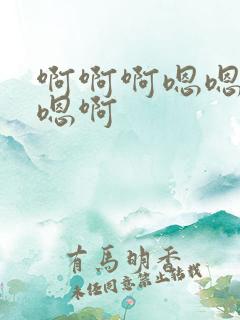 啊啊啊嗯嗯
嗯啊
有馬明香
未经同意禁止转载